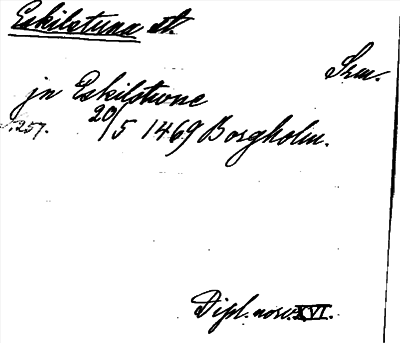 Eskilstuna st.
Srm.
jn Eskilstwne
s. 257. 20/5 1469 Borgholm.
Dipl. norv. XVI.